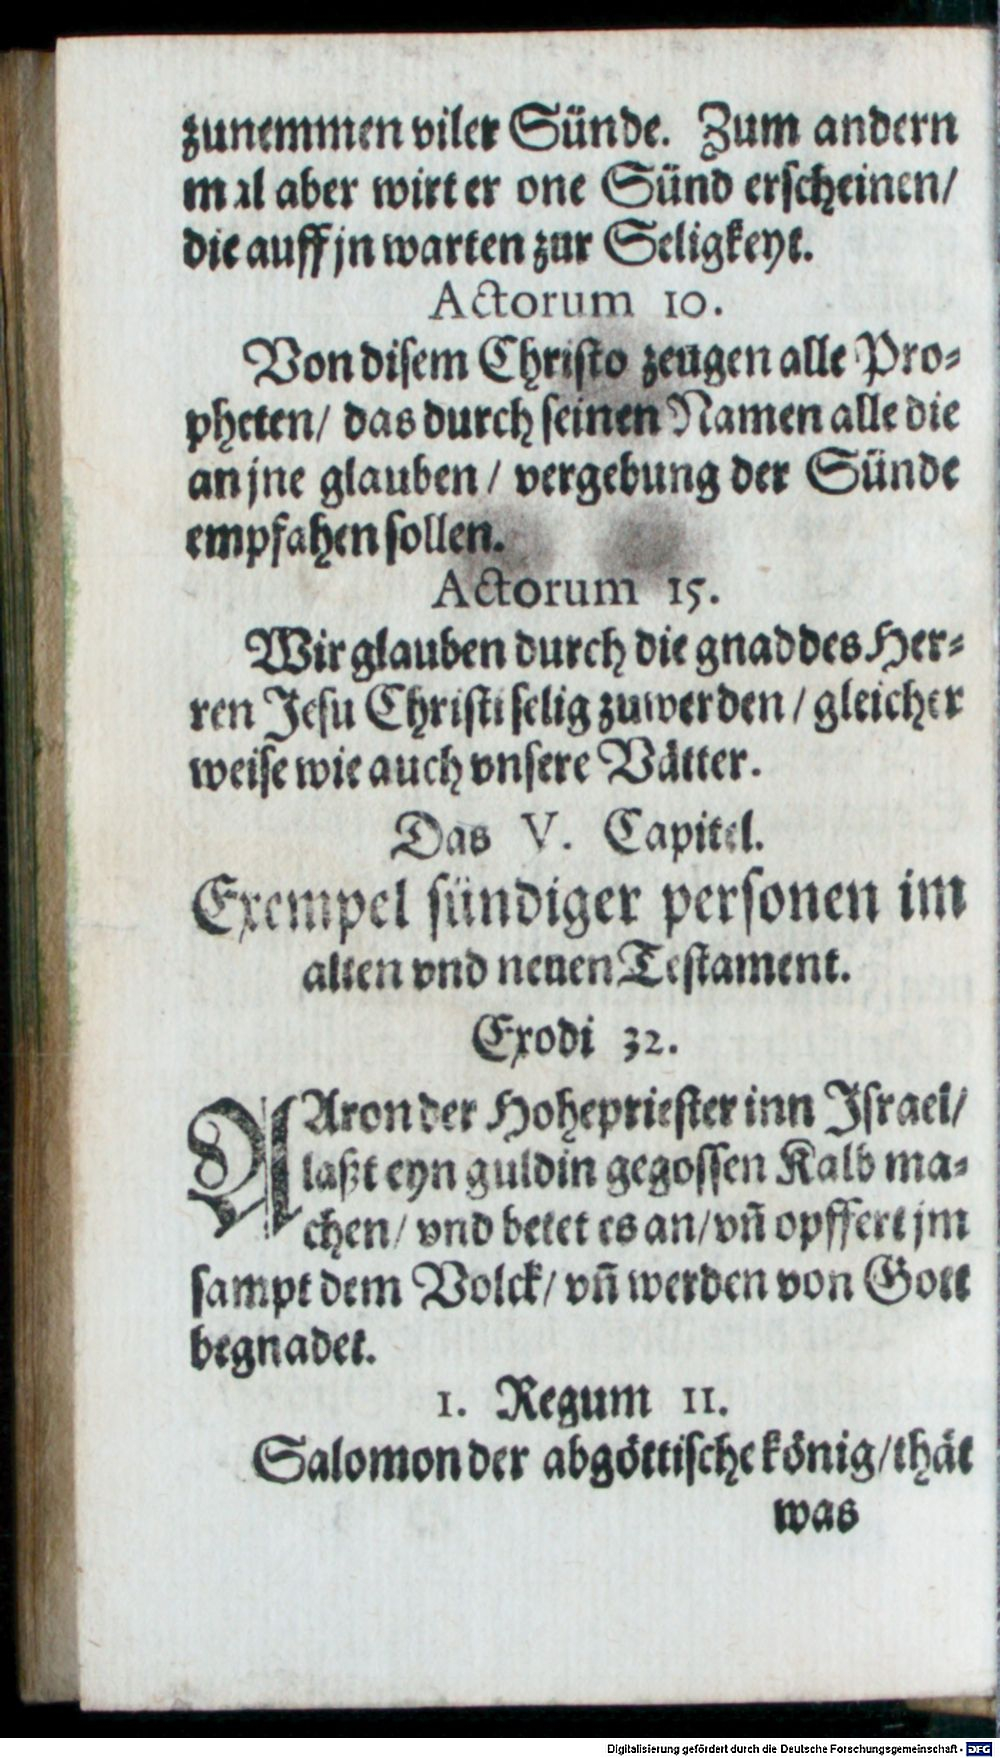 zunemmen viler Sünde. Zum andern
mal aber wirt er one Sünd erscheinen/
die auff jn warten zur Seligkeyt.
Actorum 10.
Von disem Christo zeugen alle Pro⸗
pheten/ das durch seinen Namen alle die
an jne glauben / vergebung der Sünde
empfahen sollen.
Actorum 15.
Wir glauben durch die gnad des Her⸗
ren Jesu Christi selig zuwerden / gleicher
weise wie auch vnsere Vätter.
Das V. Capitel.
Exempel sündiger personen im
alten vnd neuen Testament.
Exodi 32.
AAron der Hohepriester inn Israel/
laßt eyn guldin gegossen Kalb ma⸗
chen/ vnd betet es an/ vñ opffert jm
sampt dem Volck/ vñ werden von Gott
begnadet.
1. Regum 11.
Salomon der abgöttische könig/ thät
was
Digitalisierung gefördert durch die Deutsche Forschungsgemeinschaft - DFG